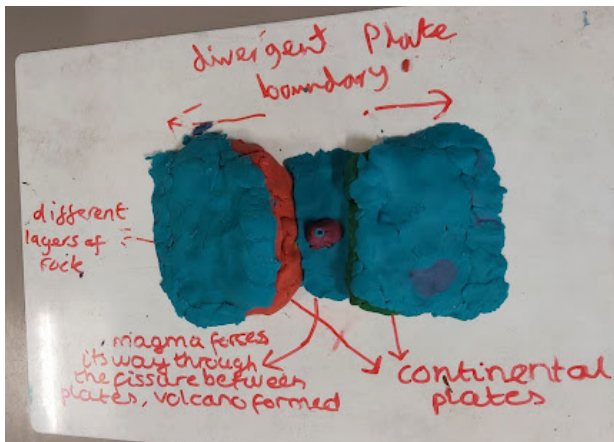 divergent Plate
boundary
different
layers of
rock
magma forces
its way through
the fissure between
plates, volcano formed
continental
plates